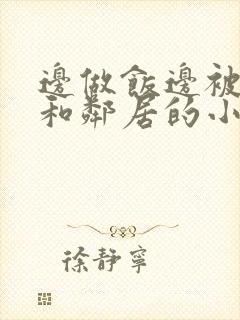 邊做飯邊被
和鄰居的小
徐靜寧